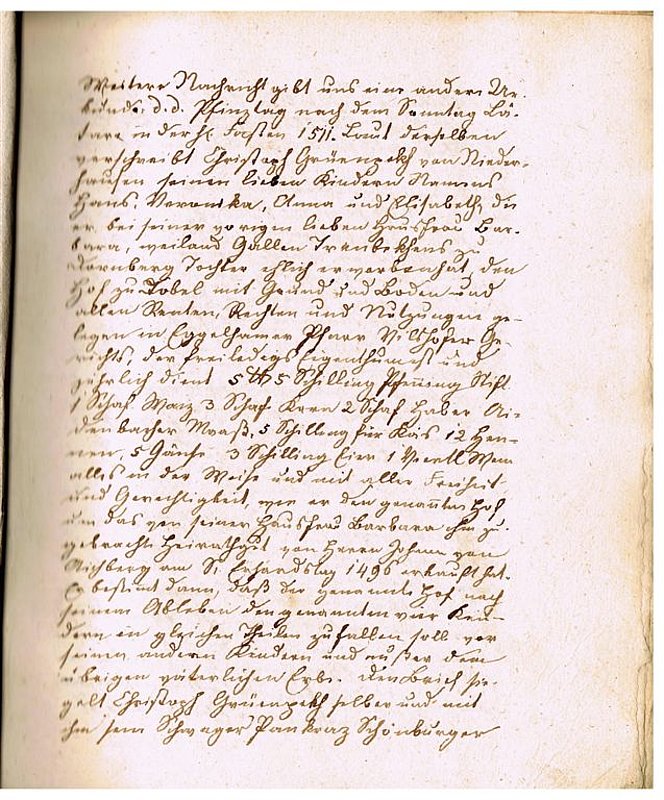 Weitere Nachricht gibt uns eine andere Ur-
kunde d.d. Pfinztag nach dem Sonntag Lä-
tare in der hl. Fasten 1511. Laut derselben
verschreibt Christoph Grüenpekh von Nieder-
hausen seinen lieben Kindern Namens
Hans, Veronika, Anna und Elisabeth, die
er bei seiner vorigen lieben Hausfrau Bar-
bara, weiland Gallen Traubekhens zu
Dornberg Tochter ehlich erworben hat, den
Hof zu Tobel mit Grund und Boden und
allen Renten, Rechten und Nutzungen ge-
legen in Eggelhamer Pfarr Vilshofer Ge-
richts, der freiledigs Eigenthum ist und
jährlich dient 5 ℔ 5 Schilling Pfening Stift
1 Schaf Waiz 3 Schaf Korn 2 Schaf Haber Ai-
denbacher Maaß, 5 Schilling für Käs 12 Hen-
nen, 5 Gänse 3 Schilling Eier 1 Viertl Wein
alles in der Weise und mit aller Freiheit
und Gerechtigkeit, wie er den genannten Hof
um das von seiner Hausfrau Barbara ihm zu-
gebrachte Heirathgut von Herrn Johann von
Aichberg am St. Erhardstag 1496 erkauft hat.
Er bestimt dann, daß der genannte Hof nach
seinem Ableben den genannten vier Kin-
dern in gleichen Theilen zufallen soll vor
seinen anderen Kindern und außer dem
übrigen väterlichen Erbe. Den Brief sie-
gelt Christoph Grüenpekh selber und mit
ihm sein Schwager Pankraz Schönburger